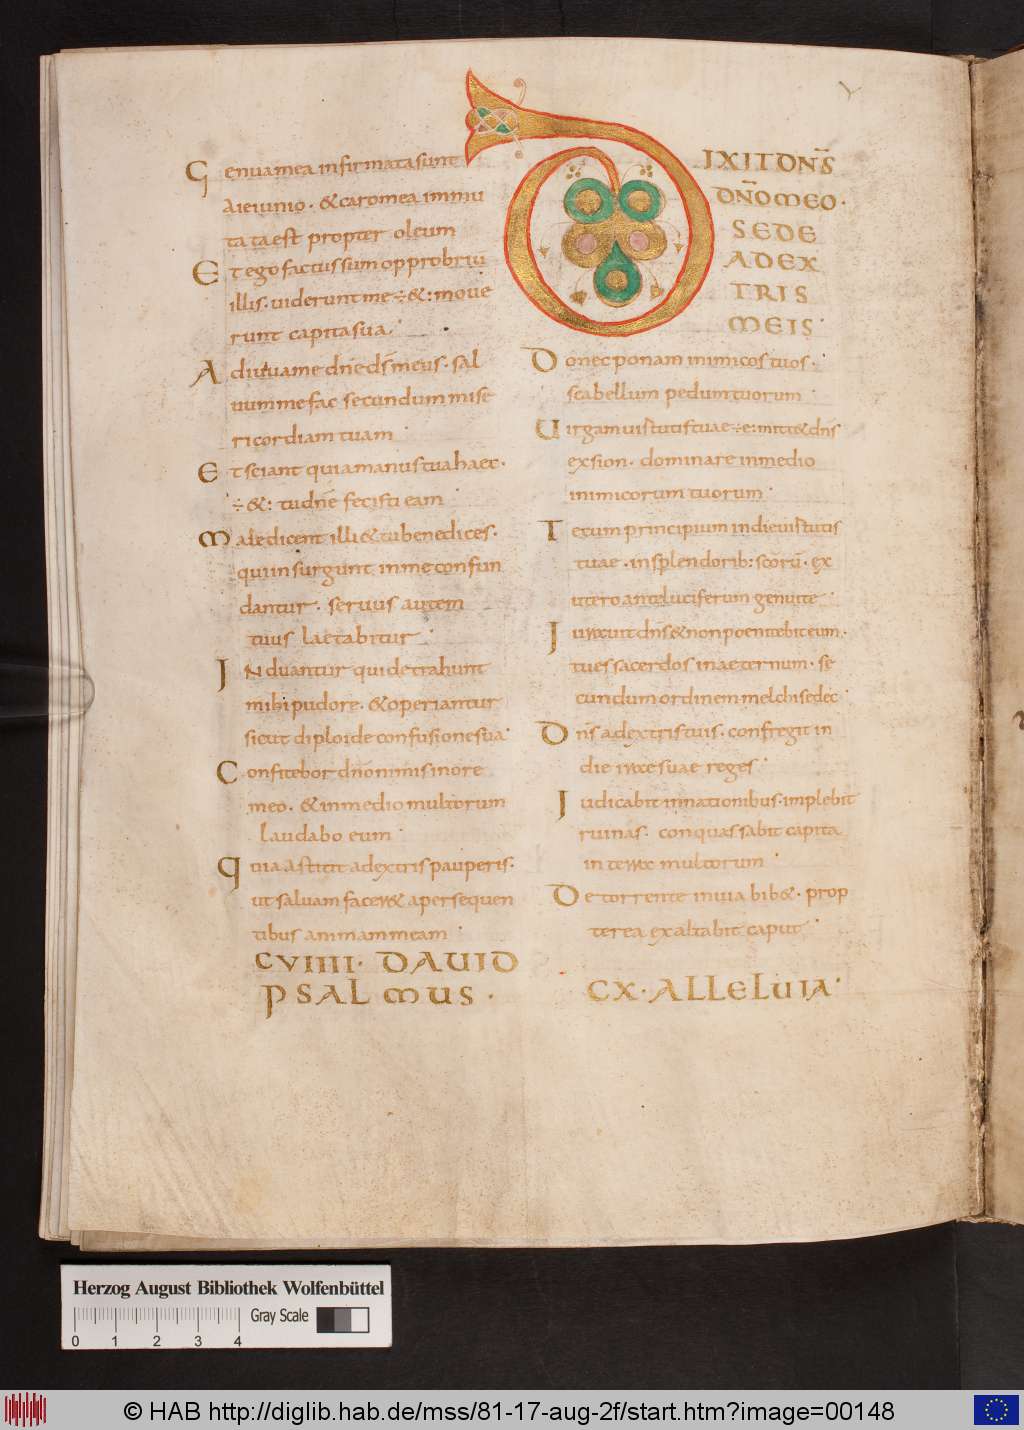 Genua mea infirmata sunt
a ieiunio · & caro mea immu
tata est propter oleum
Et ego factus sum opprobriu
illis · uiderunt me ÷ &: moue
runt capita sua ·
Adiuua me dñe dš meus · sal
uum me fac secundum mise
ricordiam tuam ·
Et sciant quia manus tua haec ·
÷ &: tu dñe fecisti eam ·
Maledicent illi & tu benedices ·
qui insurgunt in me confun
dantur · seruus autem
tuus laetabitur ·
INduantur qui detrahunt
mihi pudore · & operiantur
sicut diploide confusione sua ·
Confitebor dño nimis in ore
meo · & in medio multorum
laudabo eum ·
Quia astitit a dextris pauperis ·
ut saluam facer& a persequen
tibus animam meam ·
CVIIII · DAUID
PSALMUS ·
DIXIT DÑS
DÑO MEO ·
SEDE
A DEX
TRIS
MEIS ·
Donec ponam inimicos tuos ·
scabellum pedum tuorum ·
Uirgam uirtutis tuae ÷ e: mitt& dñs
ex sion · dominare in medio
inimicorum tuorum ·
Tecum principium in die uirtutis
tuae · in splendorib: scorū · ex
utero ante luciferum genui te ·
Iurauit dñs & non poenitebit eum ·
tu es sacerdos in aeternum · se
cundum ordinem melchisedec ·
Dñs a dextris tuis · confregit in
die irae suae reges ·
Iudicabit in nationibus · implebit
ruinas · conquassabit capita
in terra multorum ·
De torrente in uia bib& · prop
terea exaltabit caput ·
CX · ALLELUIA ·
Herzog August Bibliothek Wolfenbüttel
Gray Scale
0 1 2 3 4
© HAB http://diglib.hab.de/mss/81-17-aug-2f/start.htm?image=00148